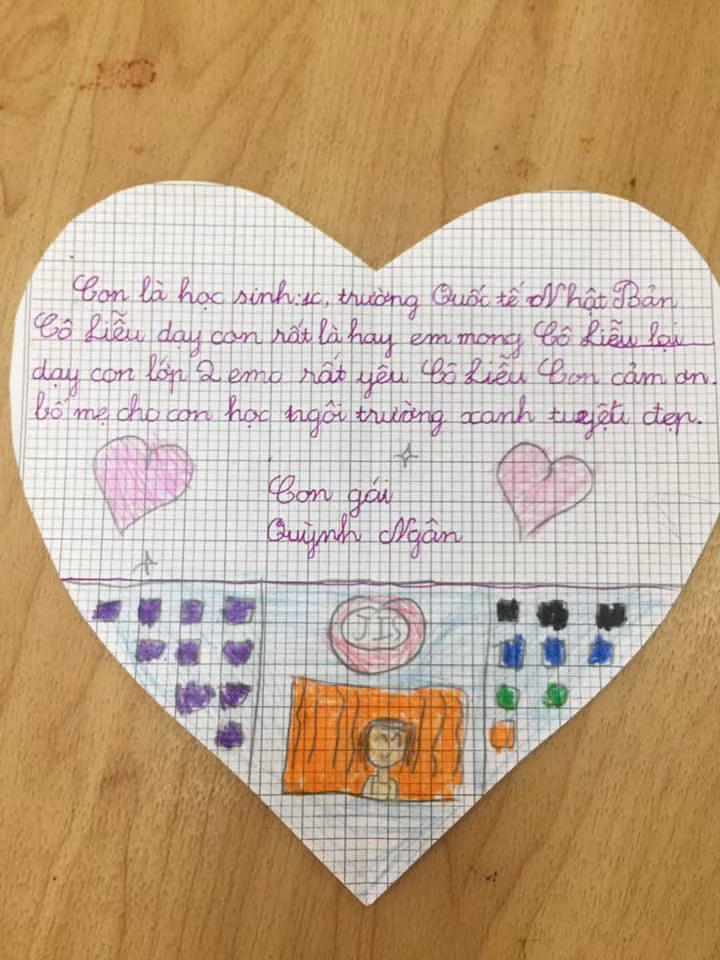 Con là học sinh: 1C, trường Quốc tế Nhật Bản
Cô Liễu dạy con rất là hay em mong Cô Liễu lại
dạy con lớp 2 emo rất yêu Cô Liễu Con cảm ơn
bố mẹ cho con học ngôi trường xanh tuyệt đẹp.
Con gái
Quỳnh Ngân
JIS